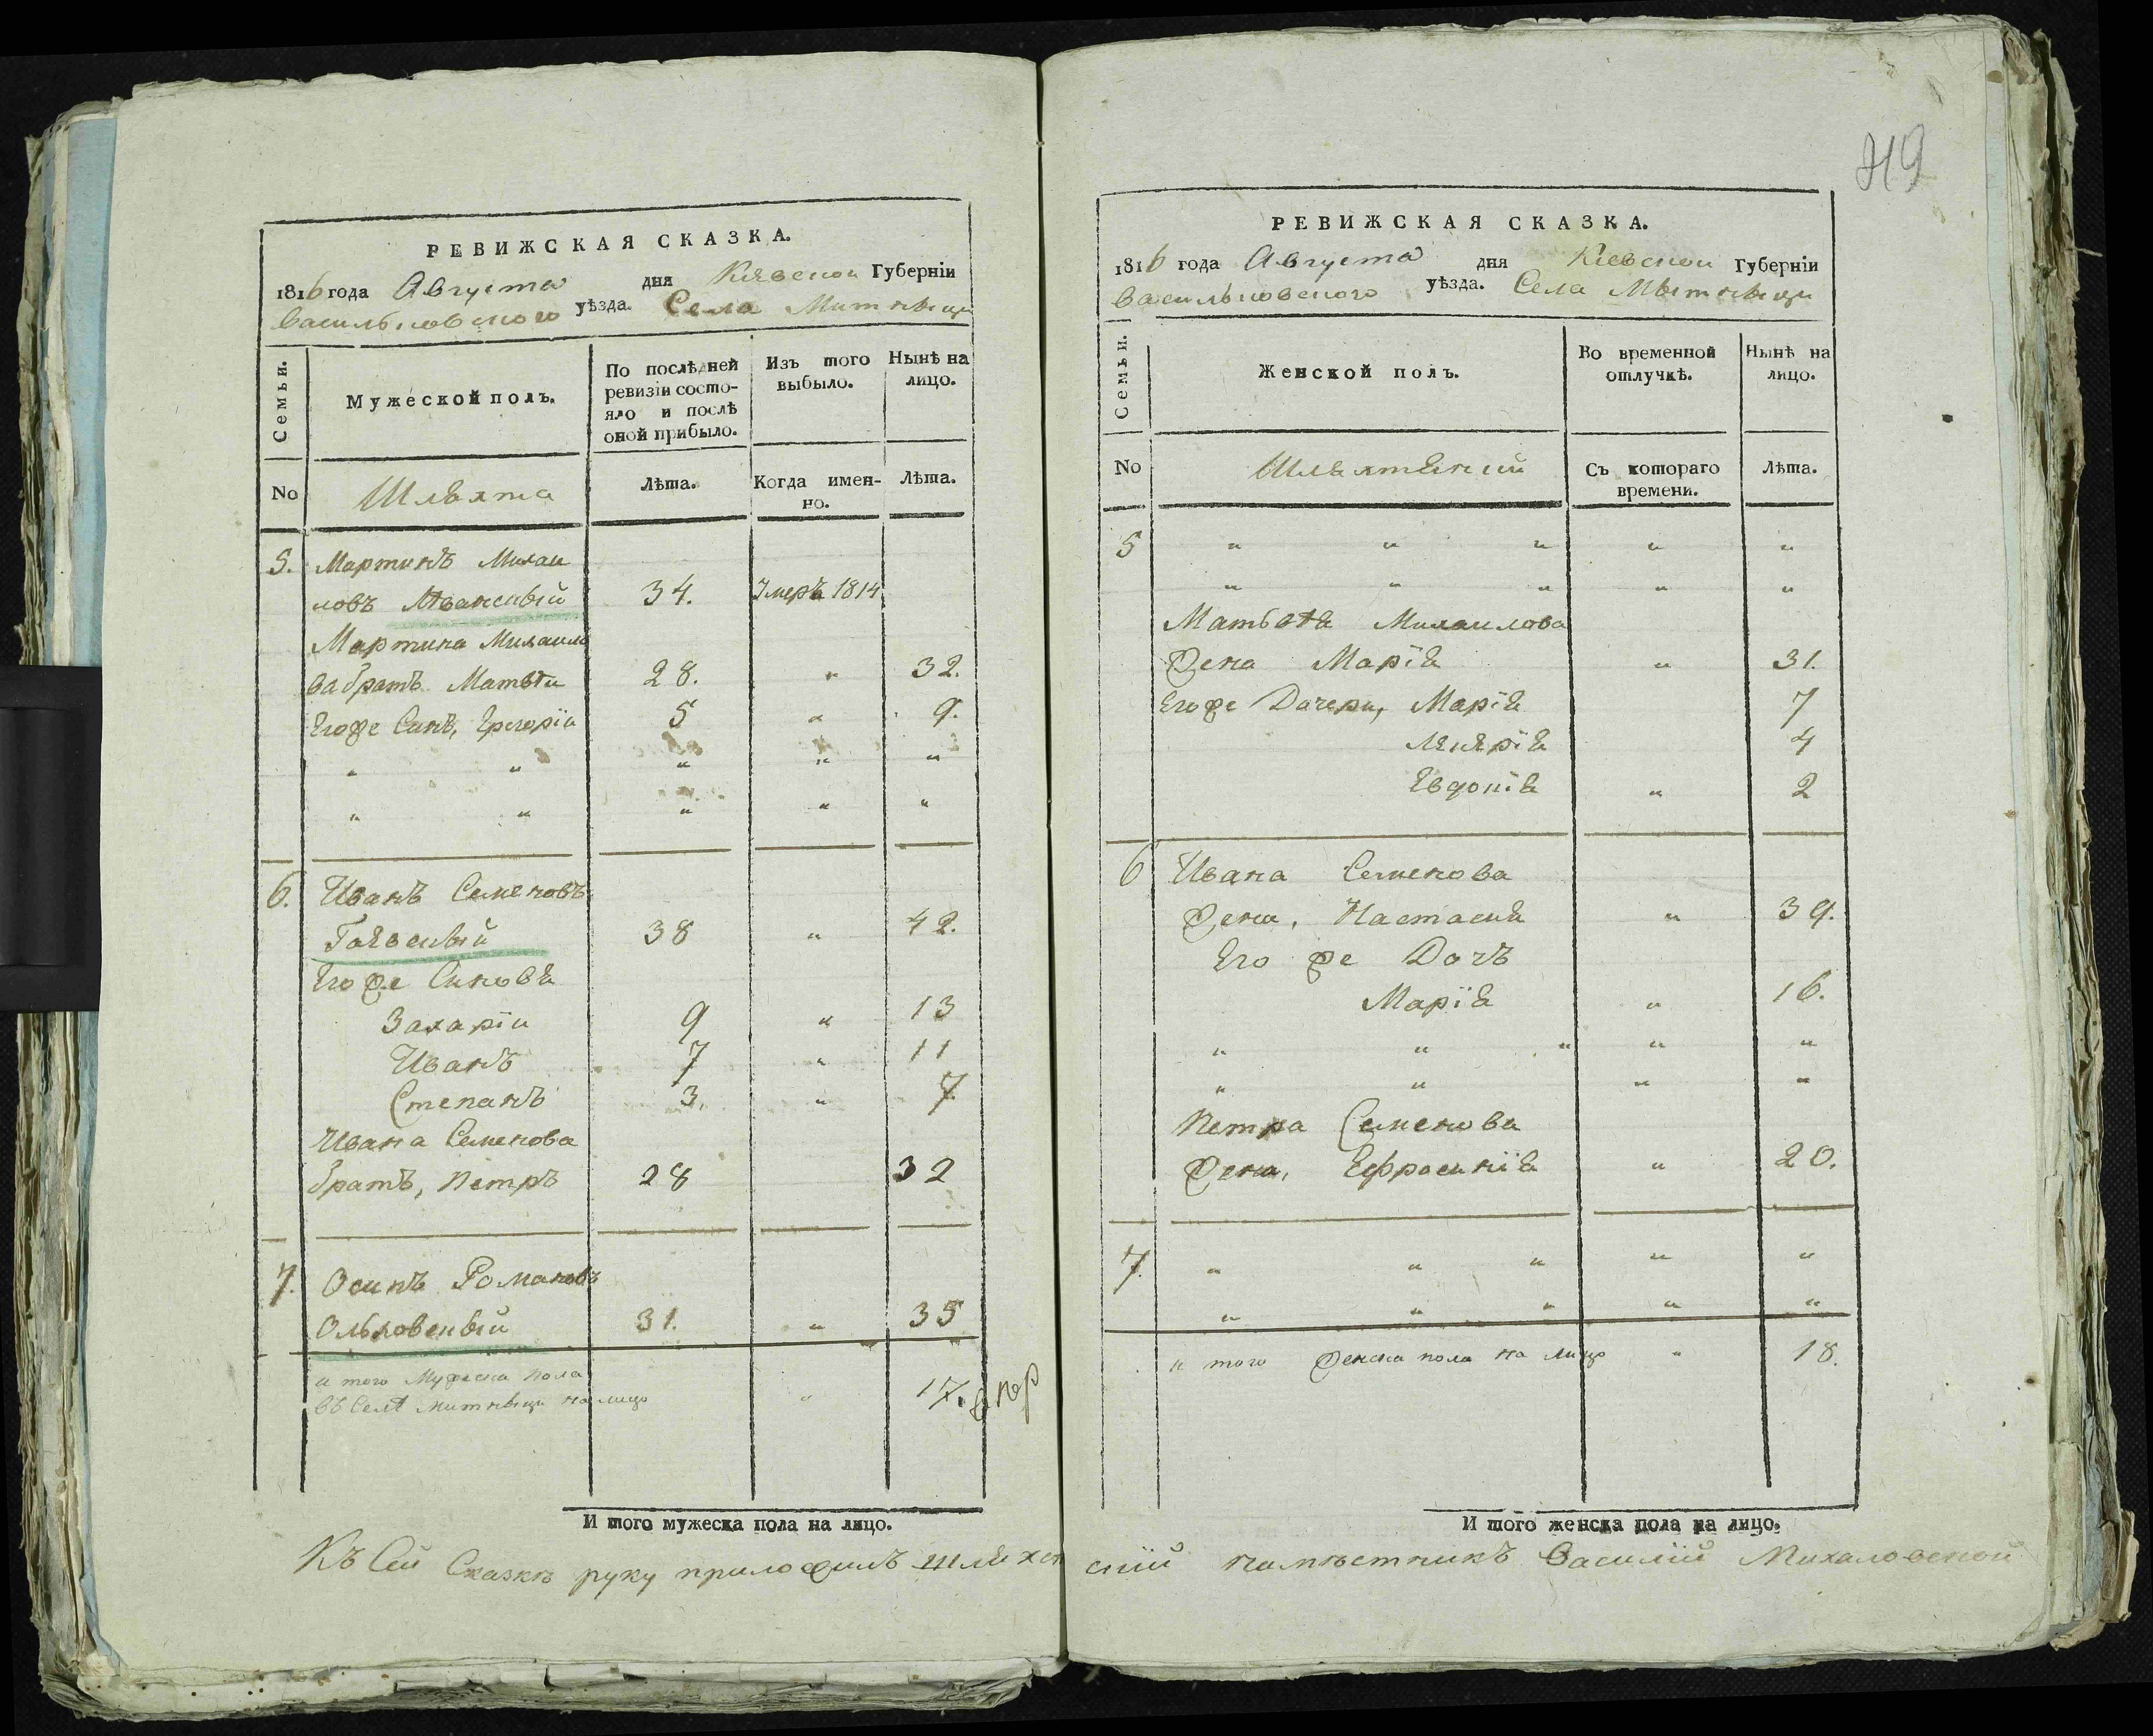 419
РЕВИЖСКАЯ СКАЗКА.
1816 года Августа дня Кіевской Губерніи
Васильковского уѣзда. Села Митницы
Семьи.
Мужеской полъ.
По послѣдней
ревизіи состо-
яло и послѣ
оной прибыло.
Изъ того
выбыло.
Нынѣ на
лицо.
No
Шляхта
Лѣта.
Когда имен-
но.
Лѣта.
5. Мартинъ Михаи
ловъ 34. Умеръ 1814
Мартина Михаило
ва братъ Матвѣи 28. " 32.
Егоже Синъ, Григорiи 5 " 9.
" " " " "
" " " " "
6. Иванъ Семеновъ
38 " 42.
Егоже Синовя
Захарiи 9 " 13
Иванъ 7 " 11
Степанъ 3. " 7
Ивана Семенова
братъ, Петръ 28 32
7. Осипъ Романовъ
Ольховскый 31. " 35
и того Мужеска пола
въ Селѣ Митницы на лицо " 17.
И того мужеска пола на лицо.
РЕВИЖСКАЯ СКАЗКА.
1816 года Августа дня Кіевской Губерніи
Васильковского уѣзда. Села Митницы
Семьи.
Женской полъ.
Во временной
отлучкѣ.
Нынѣ на
лицо.
No
Съ котораго
времени.
Лѣта.
5 " " " " "
" " " " "
Матвѣя Михаилова
Жена Марїя " 31.
Егоже Дочери, Марїя 7
4
Евдокїя " 2
6 Ивана Семенова
Жена, Настасия " 39.
Его же Дочъ
Марїя " 16.
" " " " "
" " " "
Петра Семенова
Жена, Ефросинїя " 20.
7. " " " " "
" " " " "
и того Женска пола на лицо " 18.
И того женска пола на лицо.
Къ Сей Сказкѣ руку приложилъ шляхет скій намѣстникъ Василій Михаловской